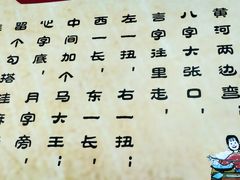 黄河两边弯;
八字大张口,
言字注里走,
左一扭 右一扭;
西一长 东一长,
中间加个马大王;
心字底, 月字旁;
留个勾搭挂麻